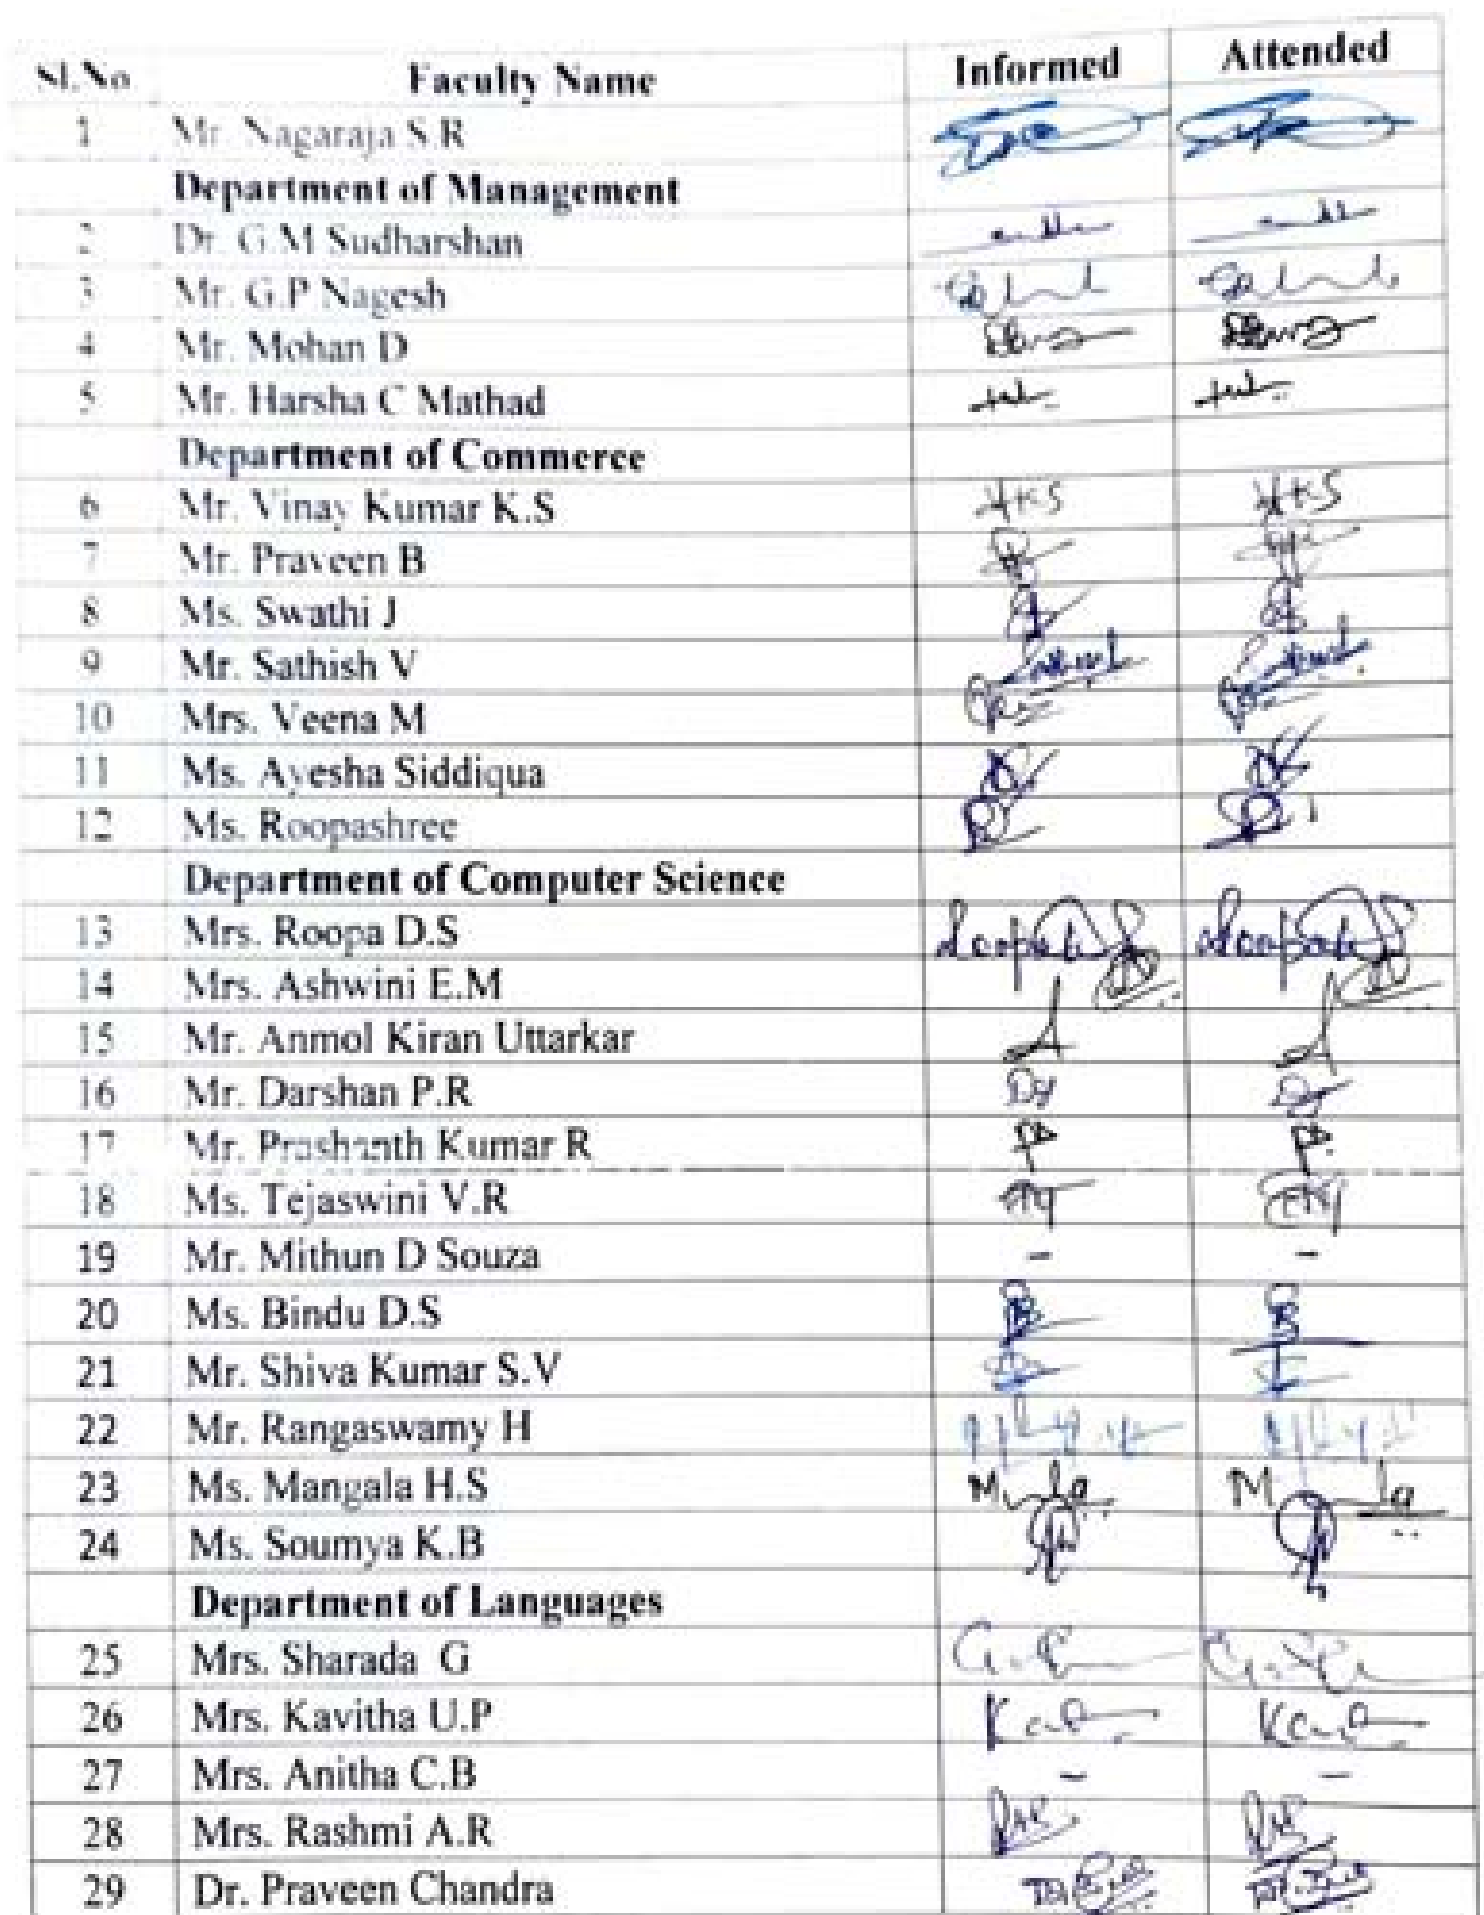 Sl.No Faculty Name Informed Attended
1 Mr. Nagaraja S R
Department of Management
2 Dr. G.M Sudharshan
3 Mr. G.P Nagesh
4 Mr. Mohan D
5 Mr. Harsha C Mathad
Department of Commerce
6 Mr. Vinay Kumar K.S
7 Mr. Praveen B
8 Ms. Swathi J
9 Mr. Sathish V
10 Mrs. Veena M
11 Ms. Ayesha Siddiqua
12 Ms. Roopashree
Department of Computer Science
13 Mrs. Roopa D.S
14 Mrs. Ashwini E.M
15 Mr. Anmol Kiran Uttarkar
16 Mr. Darshan P.R
17 Mr. Prashanth Kumar R
18 Ms. Tejaswini V.R
19 Mr. Mithun D Souza - -
20 Ms. Bindu D.S
21 Mr. Shiva Kumar S.V
22 Mr. Rangaswamy H
23 Ms. Mangala H.S
24 Ms. Soumya K.B
Department of Languages
25 Mrs. Sharada G
26 Mrs. Kavitha U.P
27 Mrs. Anitha C.B - -
28 Mrs. Rashmi A.R
29 Dr. Praveen Chandra